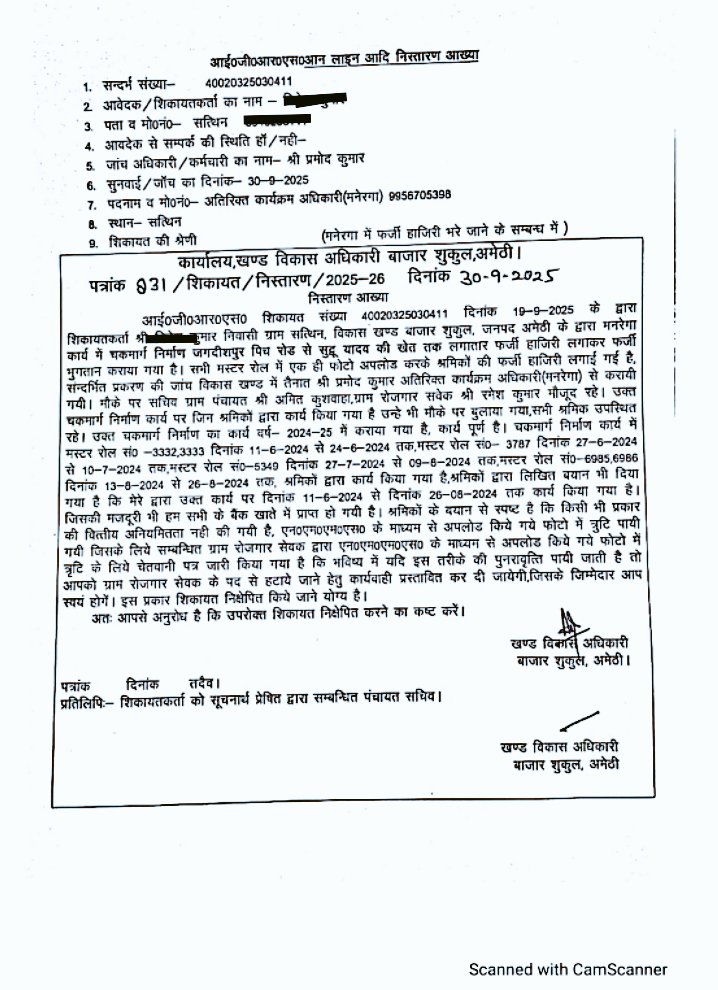 आई०जी०आर०एस०आन लाइन आदि निस्तारण आख्या
1. सन्दर्भ संख्या– 40020325030411
2. आवेदक/शिकायतकर्ता का नाम –
3. पता व मो०नं०– सत्थिन
4. आवदेक से सम्पर्क की स्थिति हॉ/नही–
5. जांच अधिकारी/कर्मचारी का नाम– श्री प्रमोद कुमार
6. सुनवाई/जॉच का दिनांक– 30-9-2025
7. पदनाम व मो०नं०– अतिरिक्त कार्यक्रम अधिकारी(मनेरगा) 9956705398
8. स्थान– सत्थिन
9. शिकायत की श्रेणी (मनेरगा में फर्जी हाजिरी भरे जाने के सम्बन्ध में )
कार्यालय,खण्ड विकास अधिकारी बाजार शुकुल,अमेठी।
पत्रांक 831 /शिकायत/निस्तारण/2025-26 दिनांक 30-9-2025
निस्तारण आख्या
आई०जी०आर०एस० शिकायत संख्या 40020325030411 दिनांक 19-9-2025 के द्वारा
शिकायतकर्ता श्री कुमार निवासी ग्राम सत्थिन, विकास खण्ड बाजार शुकुल, जनपद अमेठी के द्वारा मनरेगा
कार्य में चकमार्ग निर्माण जगदीशपुर पिच रोड से सुद्दू यादव की खेत तक लगातार फर्जी हाजिरी लगाकर फर्जी
भुगतान कराया गया है। सभी मस्टर रोल में एक ही फोटो अपलोड करके श्रमिकों की फर्जी हाजिरी लगाई गई है,
सन्दर्भित प्रकरण की जांच विकास खण्ड में तैनात श्री प्रमोद कुमार अतिरिक्त कार्यक्रम अधिकारी(मनरेगा) से करायी
गयी। मौके पर सचिव ग्राम पंचायत श्री अमित कुशवाहा,ग्राम रोजगार सवेक श्री रमेश कुमार मौजूद रहे। उक्त
चकमार्ग निर्माण कार्य पर जिन श्रमिकों द्वारा कार्य किया गया है उन्हे भी मौके पर बुलाया गया,सभी श्रमिक उपस्थित
रहे। उक्त चकमार्ग निर्माण का कार्य वर्ष- 2024-25 में कराया गया है, कार्य पूर्ण है। चकमार्ग निर्माण कार्य में
मस्टर रोल सं० –3332,3333 दिनांक 11-6-2024 से 24-6-2024 तक,मस्टर रोल सं०- 3787 दिनांक 27-6-2024
से 10-7-2024 तक,मस्टर रोल सं०-5349 दिनांक 27-7-2024 से 09-8-2024 तक,मस्टर रोल सं०-6985,6986
दिनांक 13-8-2024 से 26-8-2024 तक, श्रमिकों द्वारा कार्य किया गया है,श्रमिकों द्वारा लिखित बयान भी दिया
गया है कि मेरे द्वारा उक्त कार्य पर दिनांक 11-6-2024 से दिनांक 26-08-2024 तक कार्य किया गया है।
जिसकी मजदूरी भी हम सभी के बैंक खाते में प्राप्त हो गयी है। श्रमिकों के बयान से स्पष्ट है कि किसी भी प्रकार
की वित्तीय अनियमितता नही की गयी है, एन०एम०एम०एस० के माध्यम से अपलोड किये गये फोटो में त्रुटि पायी
गयी जिसके लिये सम्बन्धित ग्राम रोजगार सेवक द्वारा एन०एम०एम०एस० के माध्यम से अपलोड किये गये फोटो में
त्रुटि के लिये चेतवानी पत्र जारी किया गया है कि भविष्य में यदि इस तरीके की पुनरावृत्ति पायी जाती है तो
आपको ग्राम रोजगार सेवक के पद से हटाये जाने हेतु कार्यवाही प्रस्तावित कर दी जायेगी,जिसके जिम्मेदार आप
स्वयं होगें। इस प्रकार शिकायत निक्षेपित किये जाने योग्य है।
अतः आपसे अनुरोध है कि उपरोक्त शिकायत निक्षेपित करने का कष्ट करें।
खण्ड विकास अधिकारी
बाजार शुकुल, अमेठी।
पत्रांक दिनांक तदैव।
प्रतिलिपिः– शिकायतकर्ता को सूचनार्थ प्रेषित द्वारा सम्बन्धित पंचायत सचिव।
खण्ड विकास अधिकारी
बाजार शुकुल, अमेठी
Scanned with CamScanner